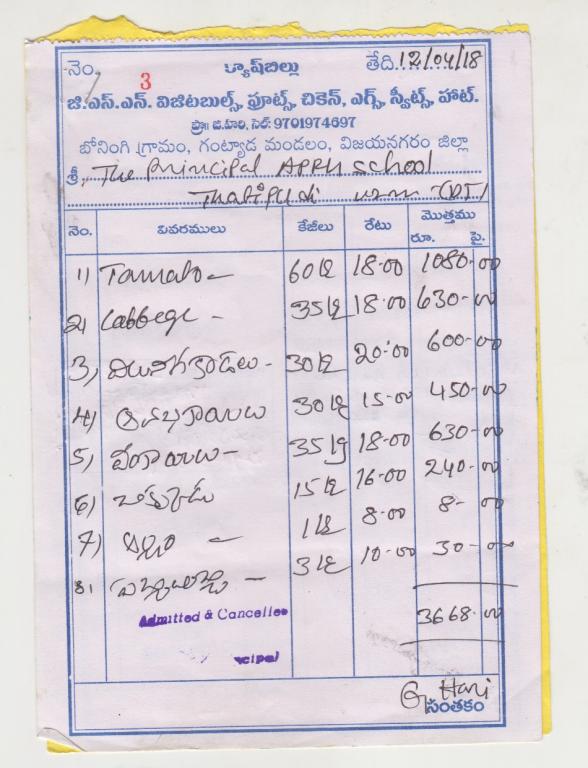 నెం. 3 క్యాష్‌బిల్లు తేది. 12/04/18
జి.ఎస్.ఎన్. విజిటబుల్స్, ఫ్రూట్స్, చికెన్, ఎగ్స్, స్వీట్స్, హాట్.
ప్రొ॥ జి.హరి, సెల్: 9701974697
బోనంగి గ్రామం, గంట్యాడ మండలం, విజయనగరం జిల్లా
శ్రీ. The Principal APRH School
Thatipudi
నెం. వివరములు కేజీలు రేటు మొత్తము రూ. పై.
1) Tamato - 60 18-00 1080-00
2) Cabbege - 35 18-00 630-00
3) 30 20-00 600-00
4) 30 15-00 450-00
5) వంకాయలు - 35 18-00 630-00
6) 15 16-00 240-00
7) అల్లం - 1 8-00 8-00
8) 3 10-00 30-00
3668-00
Admitted & Cancelled
ncipal
G. Hari
సంతకం